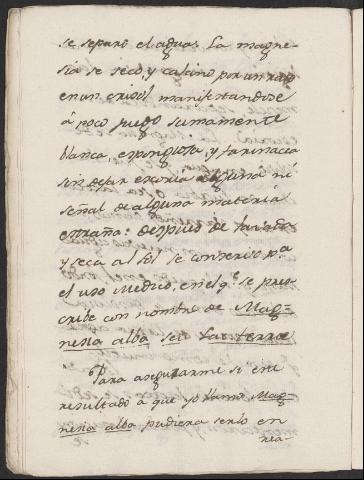 se separó el agua. La magne-
sia se secó, y calcinó por un rato
en un crisol manifestandose
à poco fuego sumamente
blanca, esponjosa, y farinacea
sin dejar escoria alguna ni
señal de alguna materia
estraña: despues de lavada
y seca al sol se conservó pª
el uso Medico, en el q.e se pres-
cribe con nombre de Mag-
nesia alba seu terrae
Para asegurarme si este
resultado à que yo llamo Mag-
nesia alba pudiera serlo en
rea-